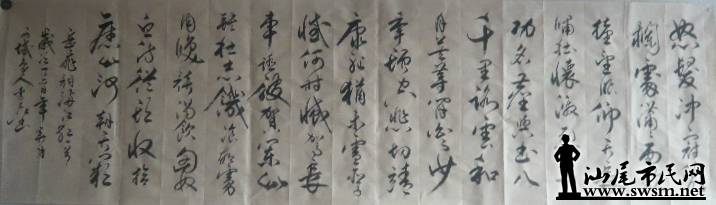 怒髮冲冠
處瀟雨
望眼仰天
嘯壯懷激
功名塵與土八
千里路雲和
月莫等閒白了少
年頭空悲切靖
康恥猶未雪
憾何時滅駕長
車踏破賀蘭山
缺壯志饑餐胡虜
肉笑談渴飲匈奴
血待從頭收拾
舊山河朝天闕
岳飛詞滿江紅
汕尾市民网
www.swsm.net